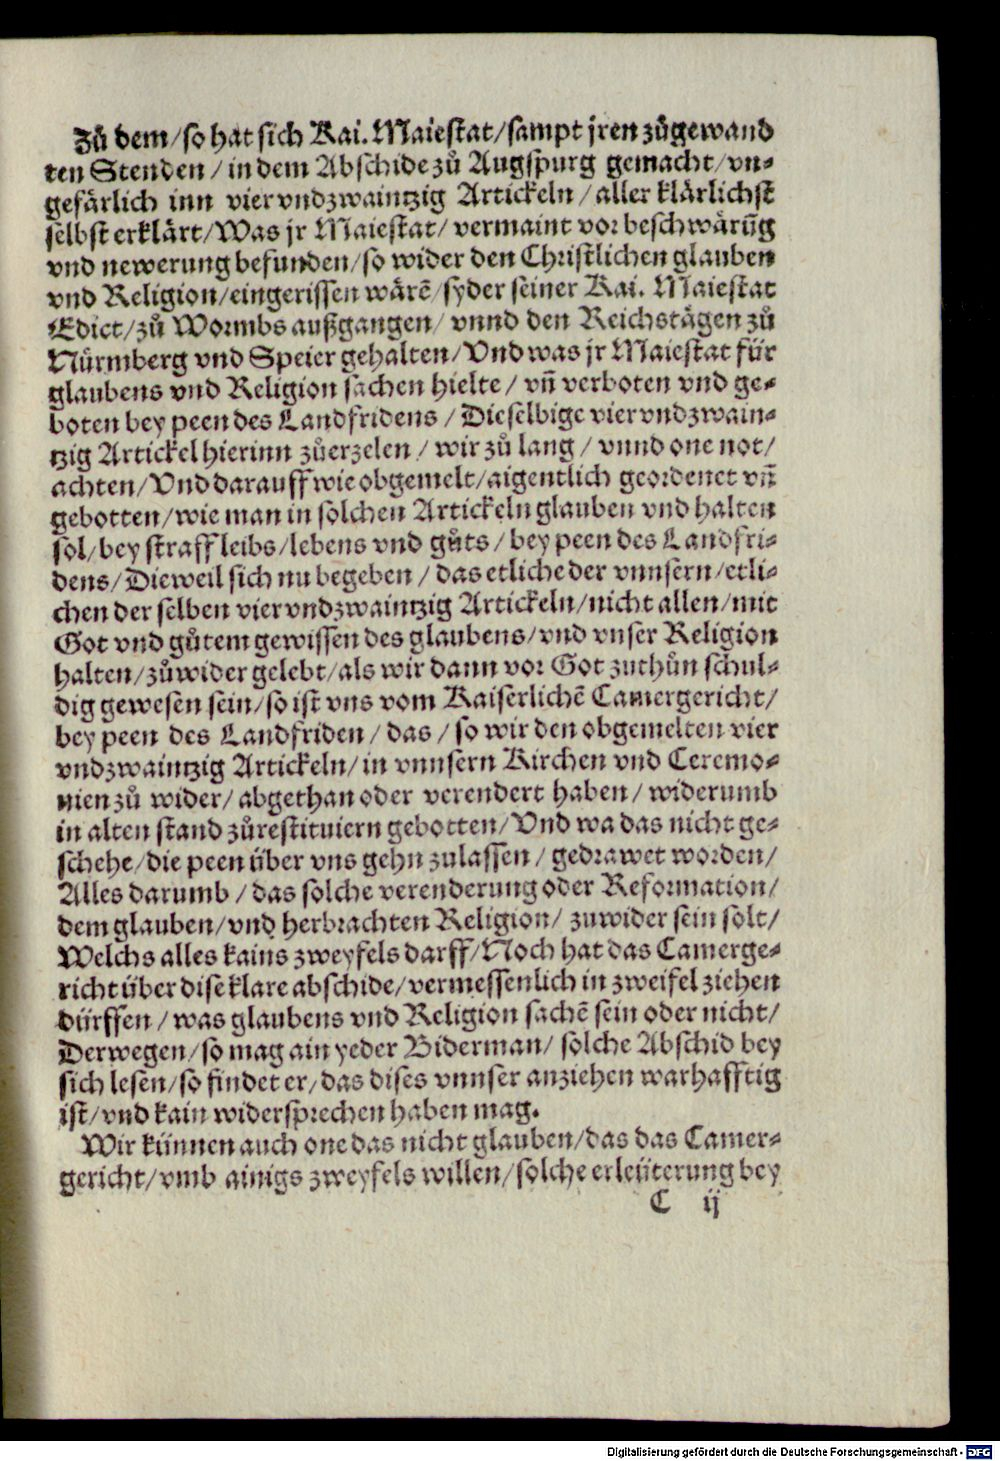 Zů dem/so hat sich Kai. Maiestat/sampt jren zůgewand
ten Stenden/in dem Abschide zů Augspurg gemacht/vn-
gefärlich inn viervndzwaintzig Artickeln/aller klärlichst
selbst erklärt/Was jr Maiestat/vermaint vor beschwärūg
vnd newerung befunden/so wider den Christlichen glauben
vnd Religion/eingerissen wärē/syder seiner Kai. Maiestat
Edict/zů Wormbs außgangen/vnnd den Reichstägen zů
Nürmberg vnd Speier gehalten/Vnd was jr Maiestat für
glaubens vnd Religion sachen hielte/vn̄ verboten vnd ge-
boten bey peen des Landfridens/Dieselbige viervndzwain-
tzig Artickel hierinn zůerzelen/wir zů lang/vnnd one not/
achten/Vnd darauff wie obgemelt/aigentlich geordenet vn̄
gebotten/wie man in solchen Artickeln glauben vnd halten
sol/bey straff leibs/lebens vnd gůts/bey peen des Landfri-
dens/Dieweil sich nu begeben/das etliche der vnnsern/etli-
chen der selben viervndzwaintzig Artickeln/nicht allen/mit
Got vnd gůtem gewissen des glaubens/vnd vnser Religion
halten/zůwider gelebt/als wir dann vor Got zuthůn schul-
dig gewesen sein/so ist vns vom Kaiserlichē Camergericht/
bey peen des Landfriden/das/so wir den obgemelten vier
vndzwaintzig Artickeln/in vnnsern Kirchen vnd Ceremo-
nien zů wider/abgethan oder verendert haben/widerumb
in alten stand zůrestituiern gebotten/Vnd wa das nicht ge-
schehe/die peen über vns gehn zulassen/gedrawet worden/
Alles darumb/das solche verenderung oder Reformation/
dem glauben/vnd herbrachten Religion/zuwider sein solt/
Welchs alles kains zweyfels darff/Noch hat das Camerge-
richt über dise klare abschide/vermessenlich in zweifel ziehen
dürffen/was glaubens vnd Religion sachē sein oder nicht/
Derwegen/so mag ain yeder Biderman/solche Abschid bey
sich lesen/so findet er/das dises vnnser anziehen warhafftig
ist/vnd kain widersprechen haben mag.
Wir künnen auch one das nicht glauben/das das Camer-
gericht/vmb ainigs zweyfels willen/solche erleüterung bey
C ij
Digitalisierung gefördert durch die Deutsche Forschungsgemeinschaft - DFG